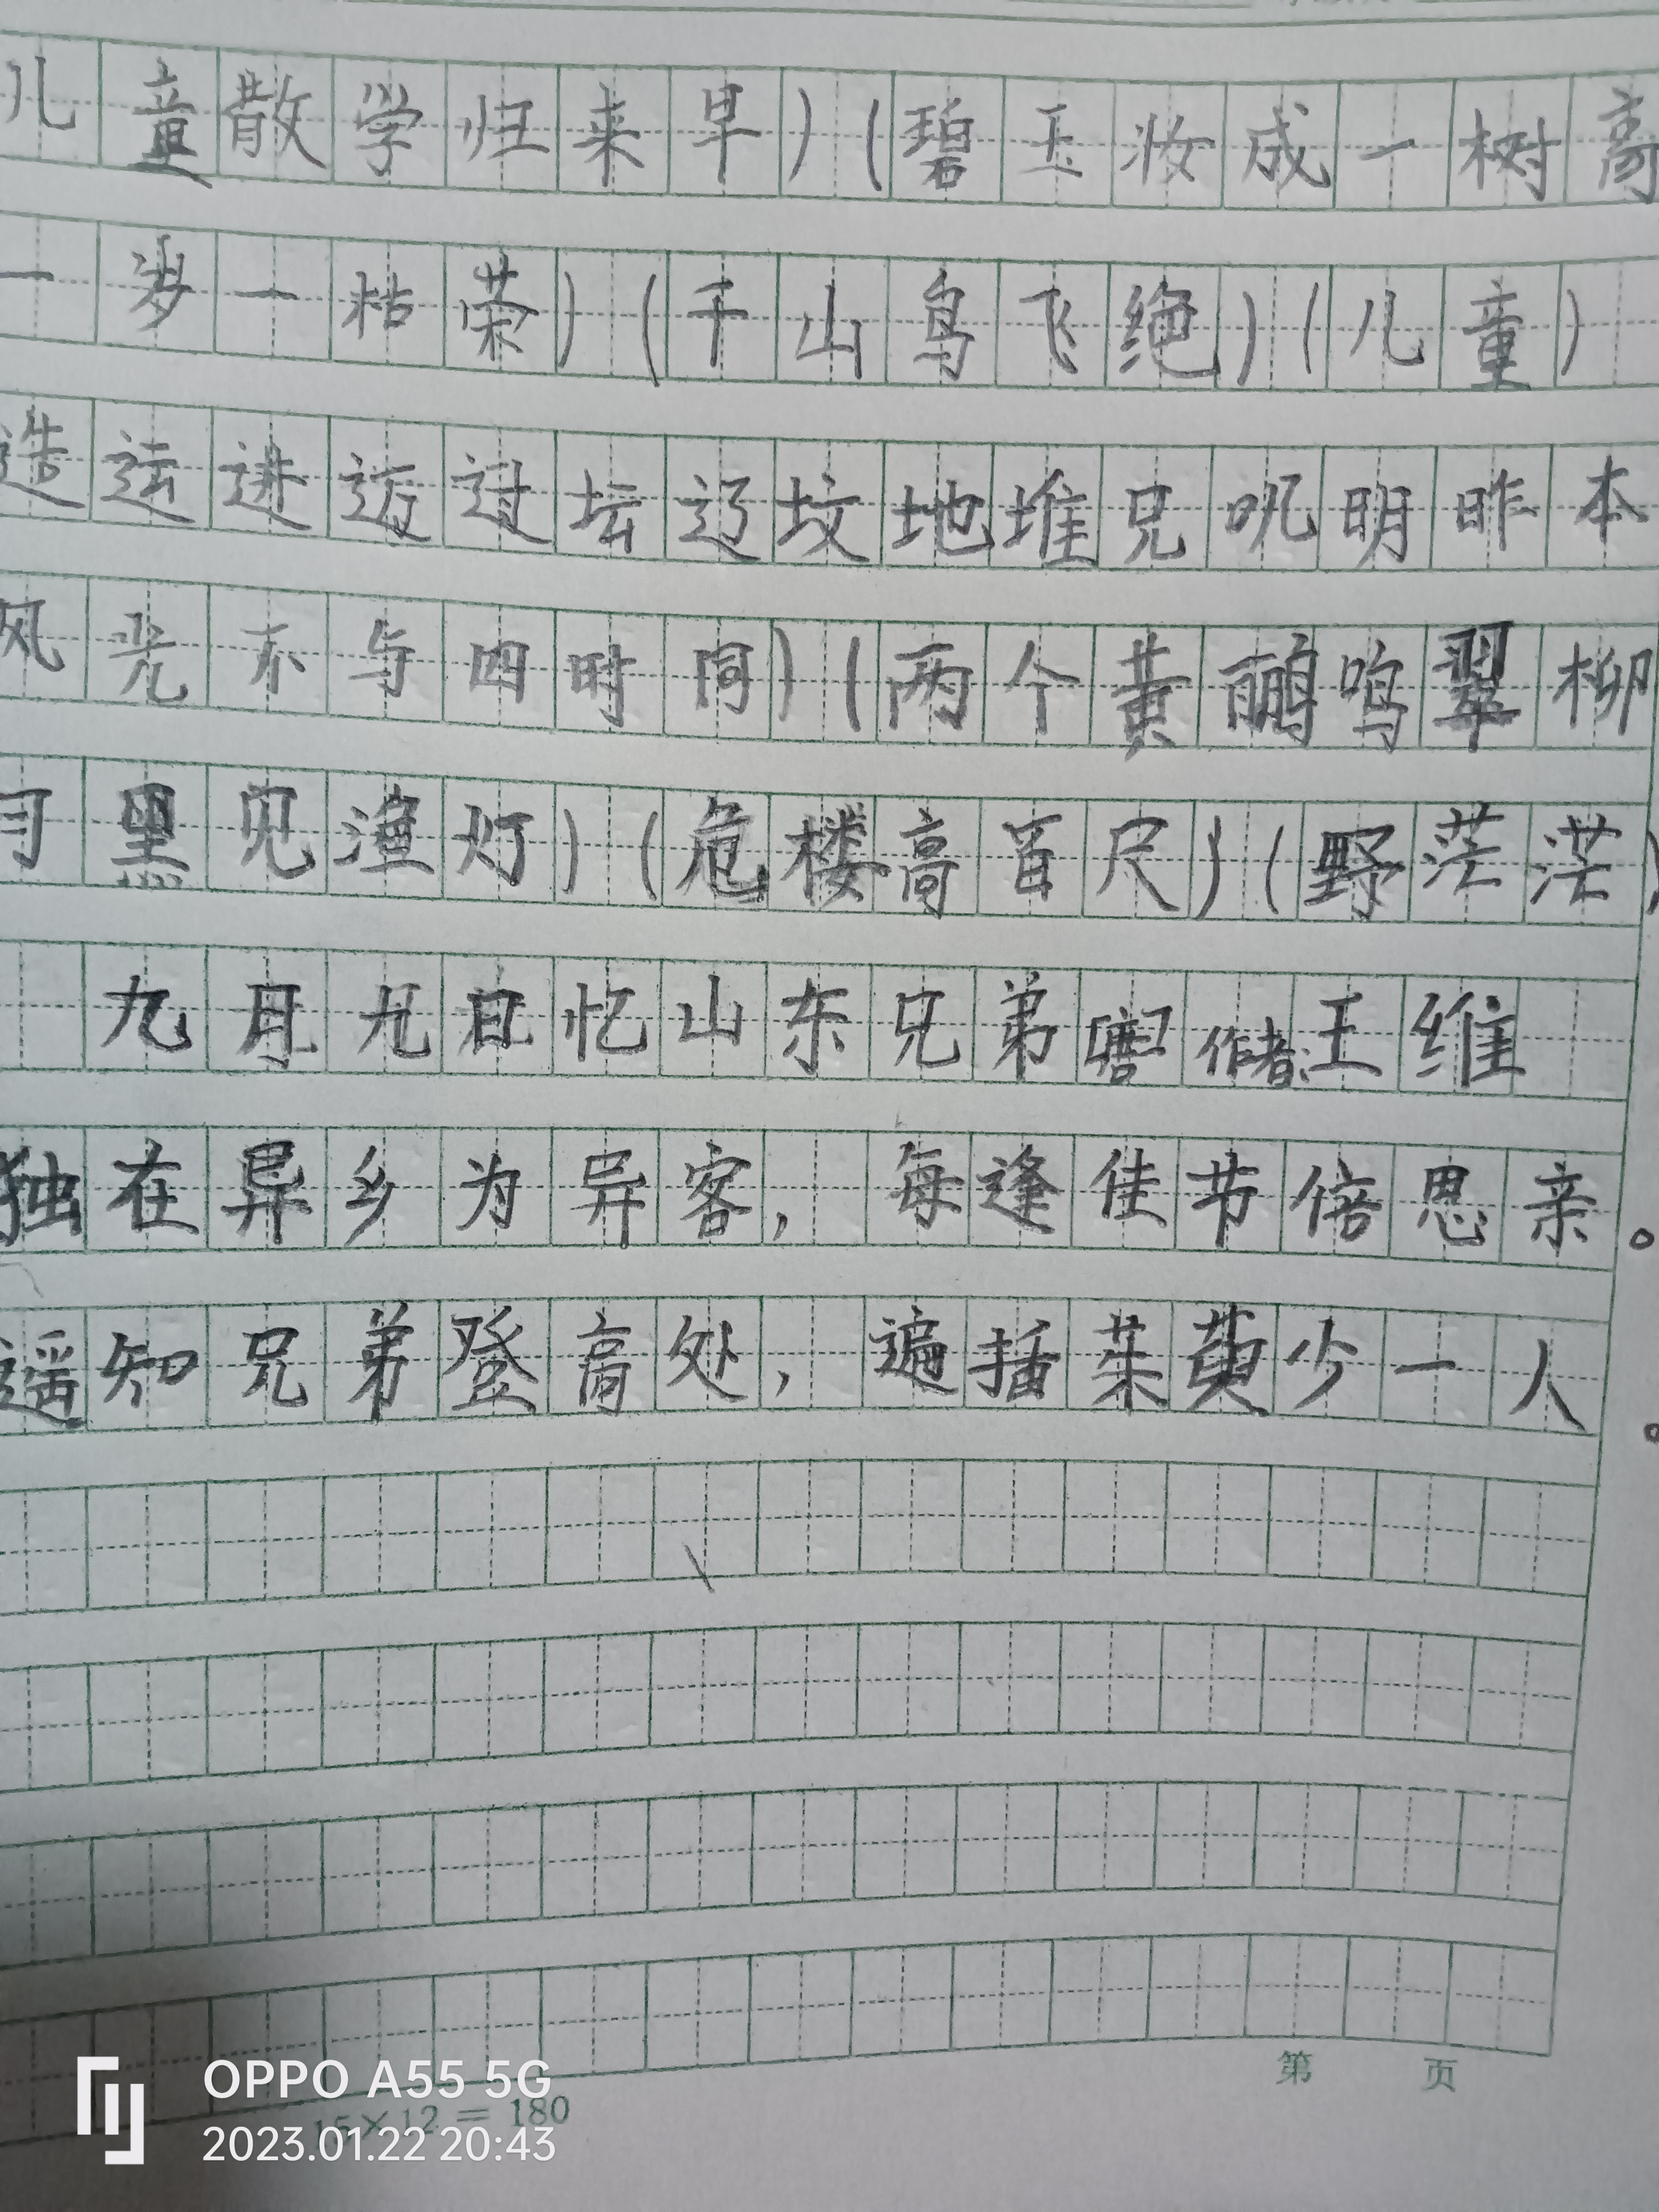 儿童散学归来早)(碧玉妆成一树高
一岁一枯荣)(千山鸟飞绝)(儿童)
造运进迈过坛辽坟地堆兄吼明昨本
风光不与四时同)(两个黄鹂鸣翠柳
月黑见渔灯)(危楼高百尺)(野茫茫)
九月九日忆山东兄弟[唐]作者:王维
独在异乡为异客,每逢佳节倍思亲。
遥知兄弟登高处,遍插茱萸少一人。
第 页
15×12=180
OPPO A55 5G
2023.01.22 20:43